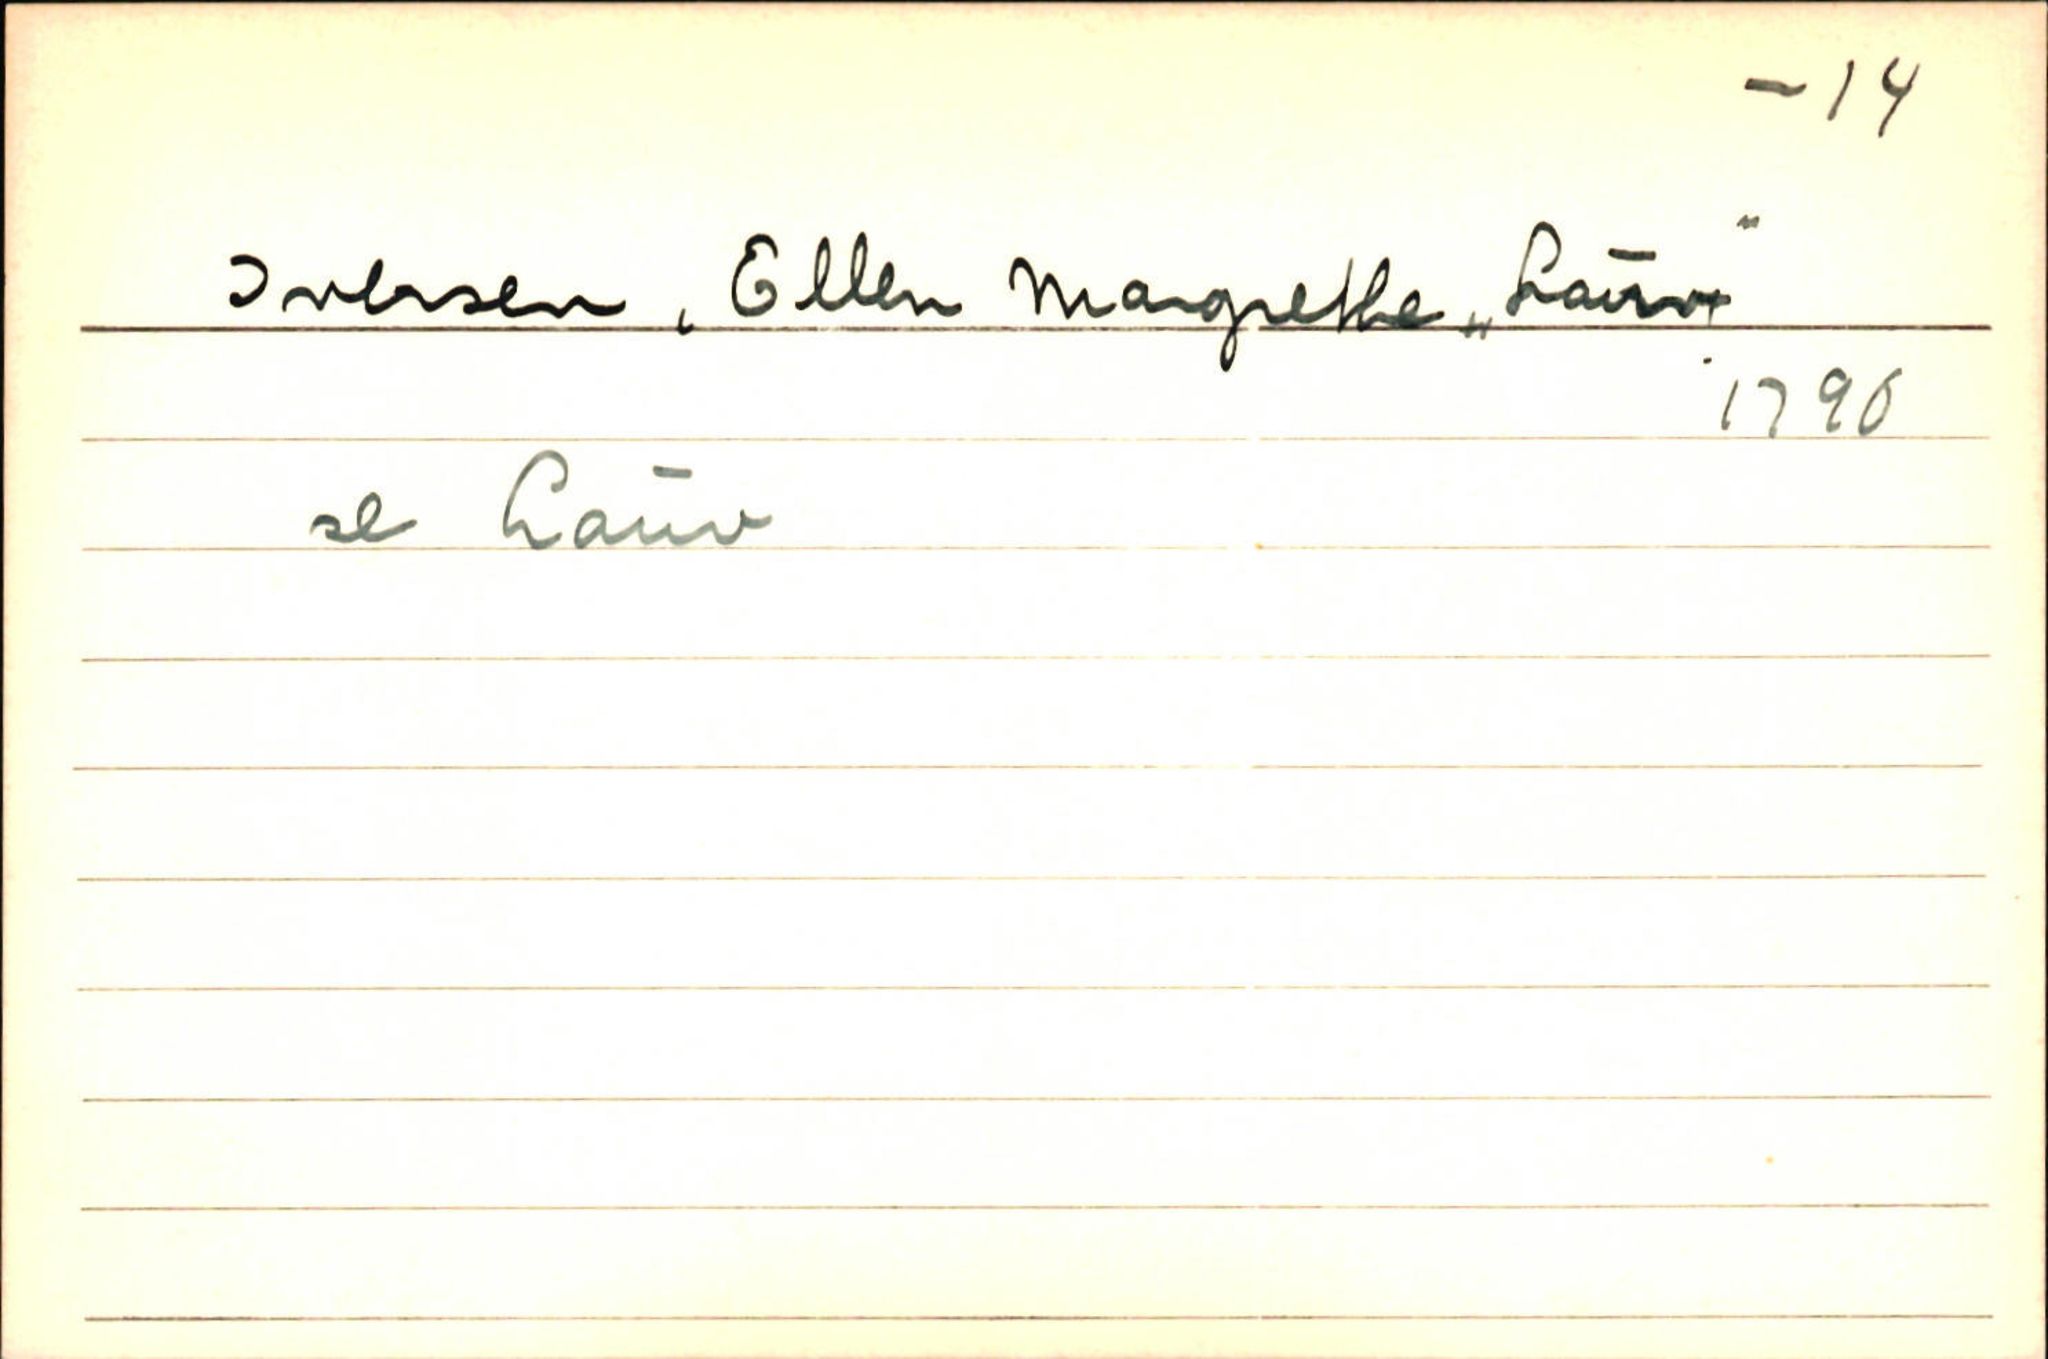 -14
Iversen, Ellen Margrethe „Lauv"
1790
se Lauv